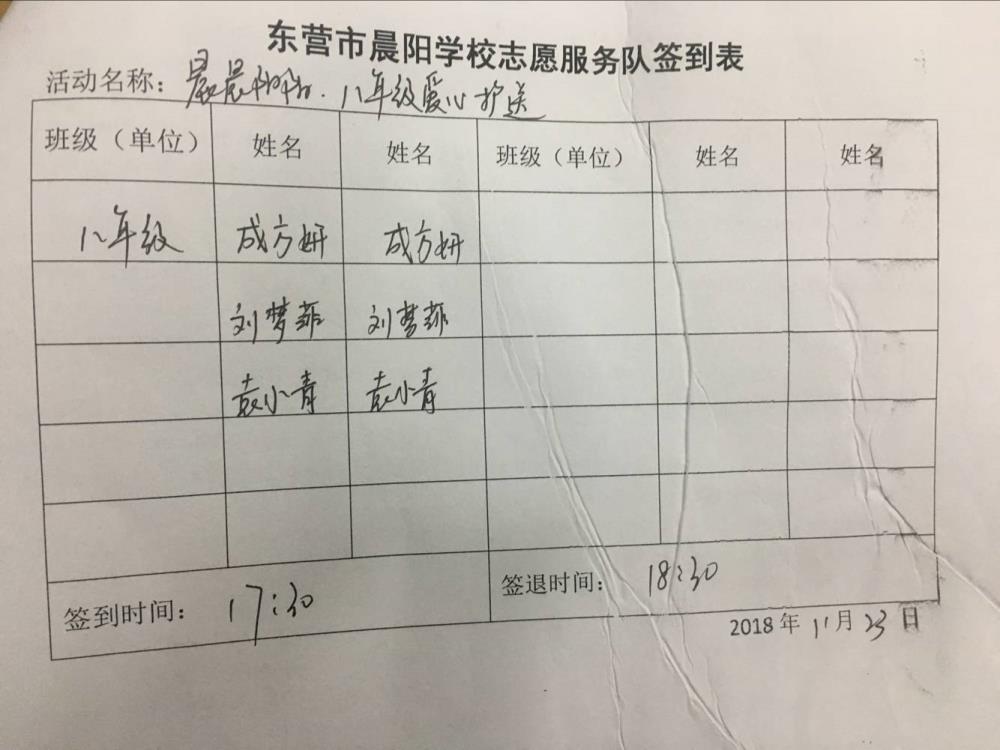 东营市晨阳学校志愿服务队签到表
活动名称: 八年级爱心护送
班级（单位） 姓名 姓名 班级（单位） 姓名 姓名
八年级 成方妍 成方妍
刘梦菲 刘梦菲
袁小青 袁小青
签到时间: 17:30 签退时间: 18:30
2018年11月23日